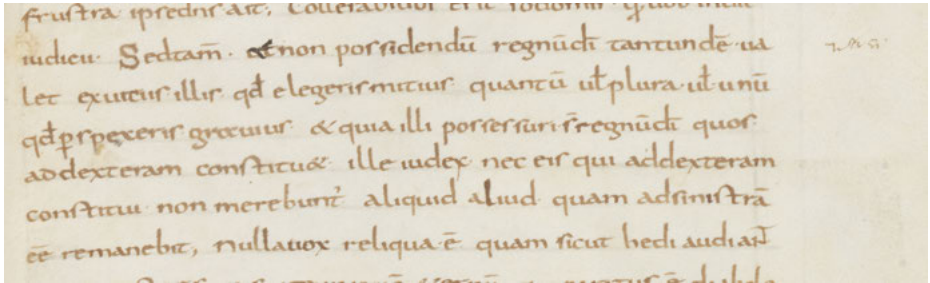 frustra ipse dñs ait,
iudieu· Sed tam̄· & non possidendū regnū dī tantundē ua
let ex uteuis illis· qđ elegeris mitius· quantū ul̄ plura· ul̄ unū
qđ ꝑspexeris grauius· & quia illi possessuri s̄ regnū dī quos
ad dexteram constitu&· ille iudex· nec eis qui ad dexteram
constitui· non merebunt᷑ aliquid aliud quam ad sinistrā
eē remanebit, nulla uox reliqua ē quam sicut hedi audiant